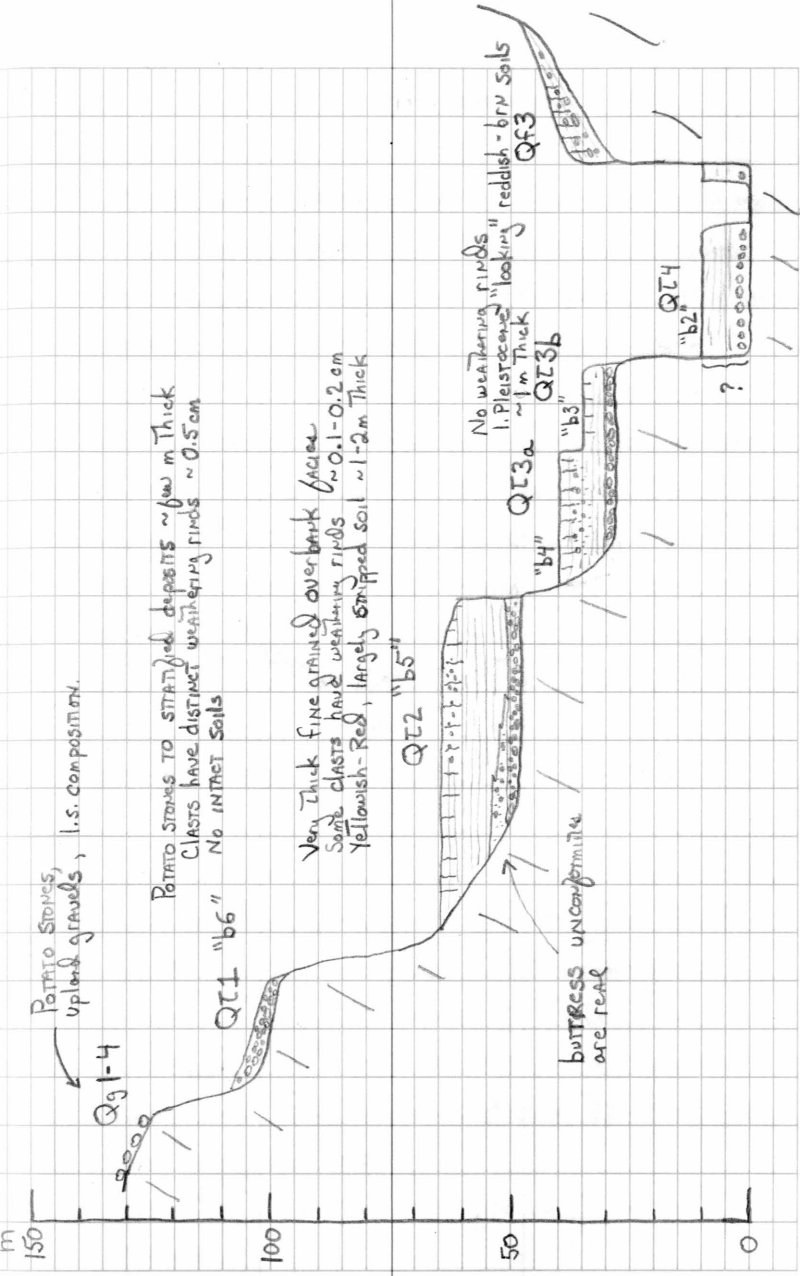 m
150
100
50
0
POTATO STONES,
upland gravels, l.s. composition.
Qg 1-4
POTATO STONES TO STRATIFIED deposits ~ few m Thick
Clasts have distinct weathering rinds ~ 0.5 cm
No INTACT Soils
Qt1 "b6"
Very Thick fine grained overbank facies
Some clasts have weathering rinds ~0.1-0.2 cm
Yellowish-Red, largely stripped soil ~1-2m Thick
Qt2 "b5"
buttress unconformities
are real
No weathering rinds
l. Pleistocene "looking" reddish-brn soils
~1m Thick
Qt3a
Qt3b
"b4"
"b3"
Qt4
"b2"
?
Qf3